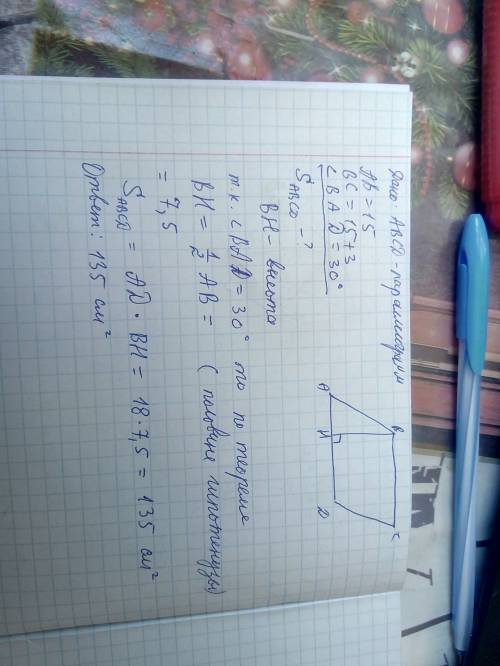 Дано: ABCD - параллелограм
AB = 15
BC = 15+3
∠BAD = 30°
S ABCD - ?
A
B
C
D
H
BH - высота
т.к. ∠BAD = 30° то по теореме
BH = 1/2 AB = (половине гипотенузы)
= 7,5
S ABCD = AD · BH = 18 · 7,5 = 135 см²
Ответ: 135 см²
T